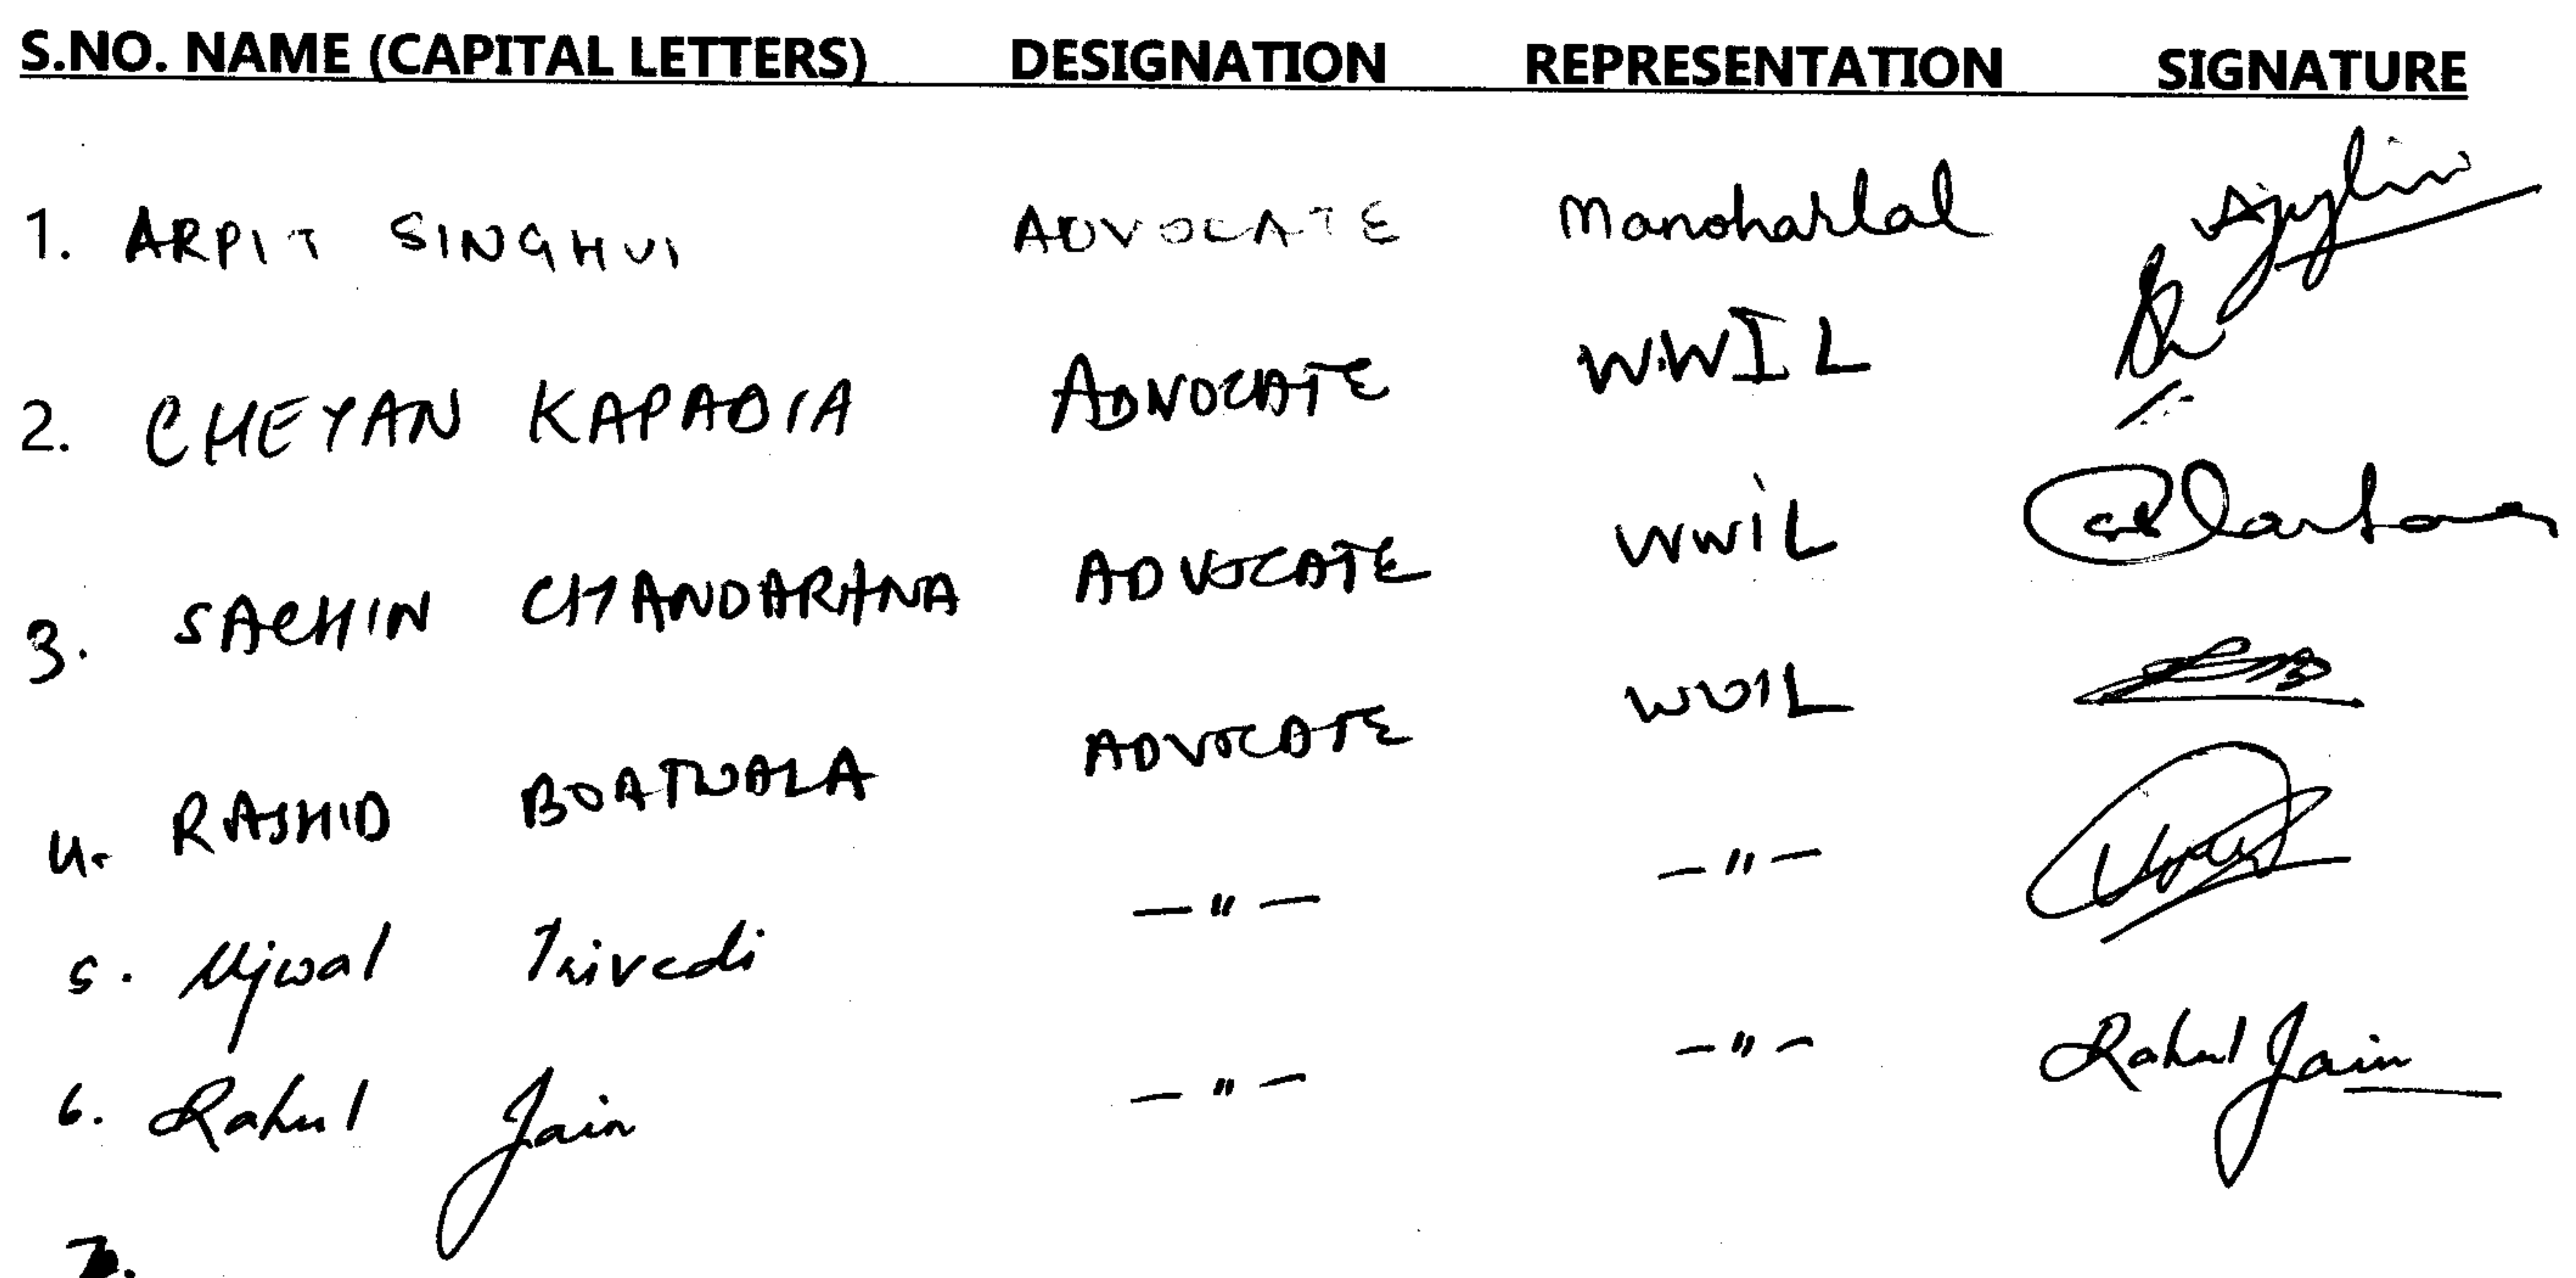 S.NO. NAME (CAPITAL LETTERS) DESIGNATION REPRESENTATION SIGNATURE
1. ARPIT SINGHVI ADVOCATE Manoharlal
2. CHEYAN KAPADIA ADVOCATE WWIL
3. SACHIN CHANDARANA ADVOCATE WWIL
4. RASHID BOATWALA ADVOCATE WWIL
5. Ujwal Trivedi —"— —"—
6. Rahul Jain —"— —"— Rahul Jain
7.